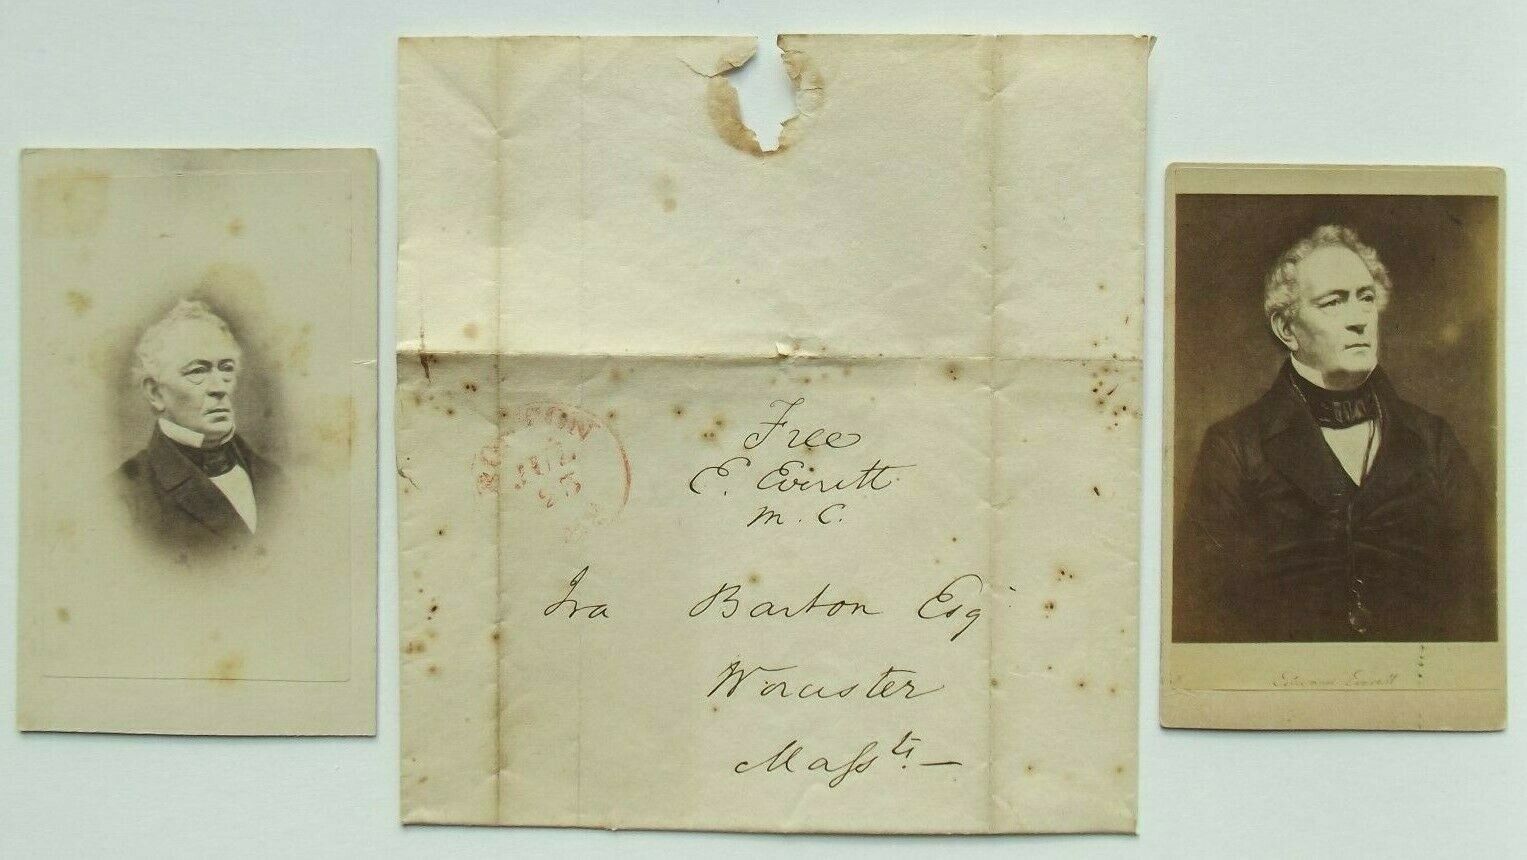 BOSTON
JUL
23
MS
Free
E. Everett
M. C.
Ira Barton Esq
Worcester
Massts. —
Edward Everett